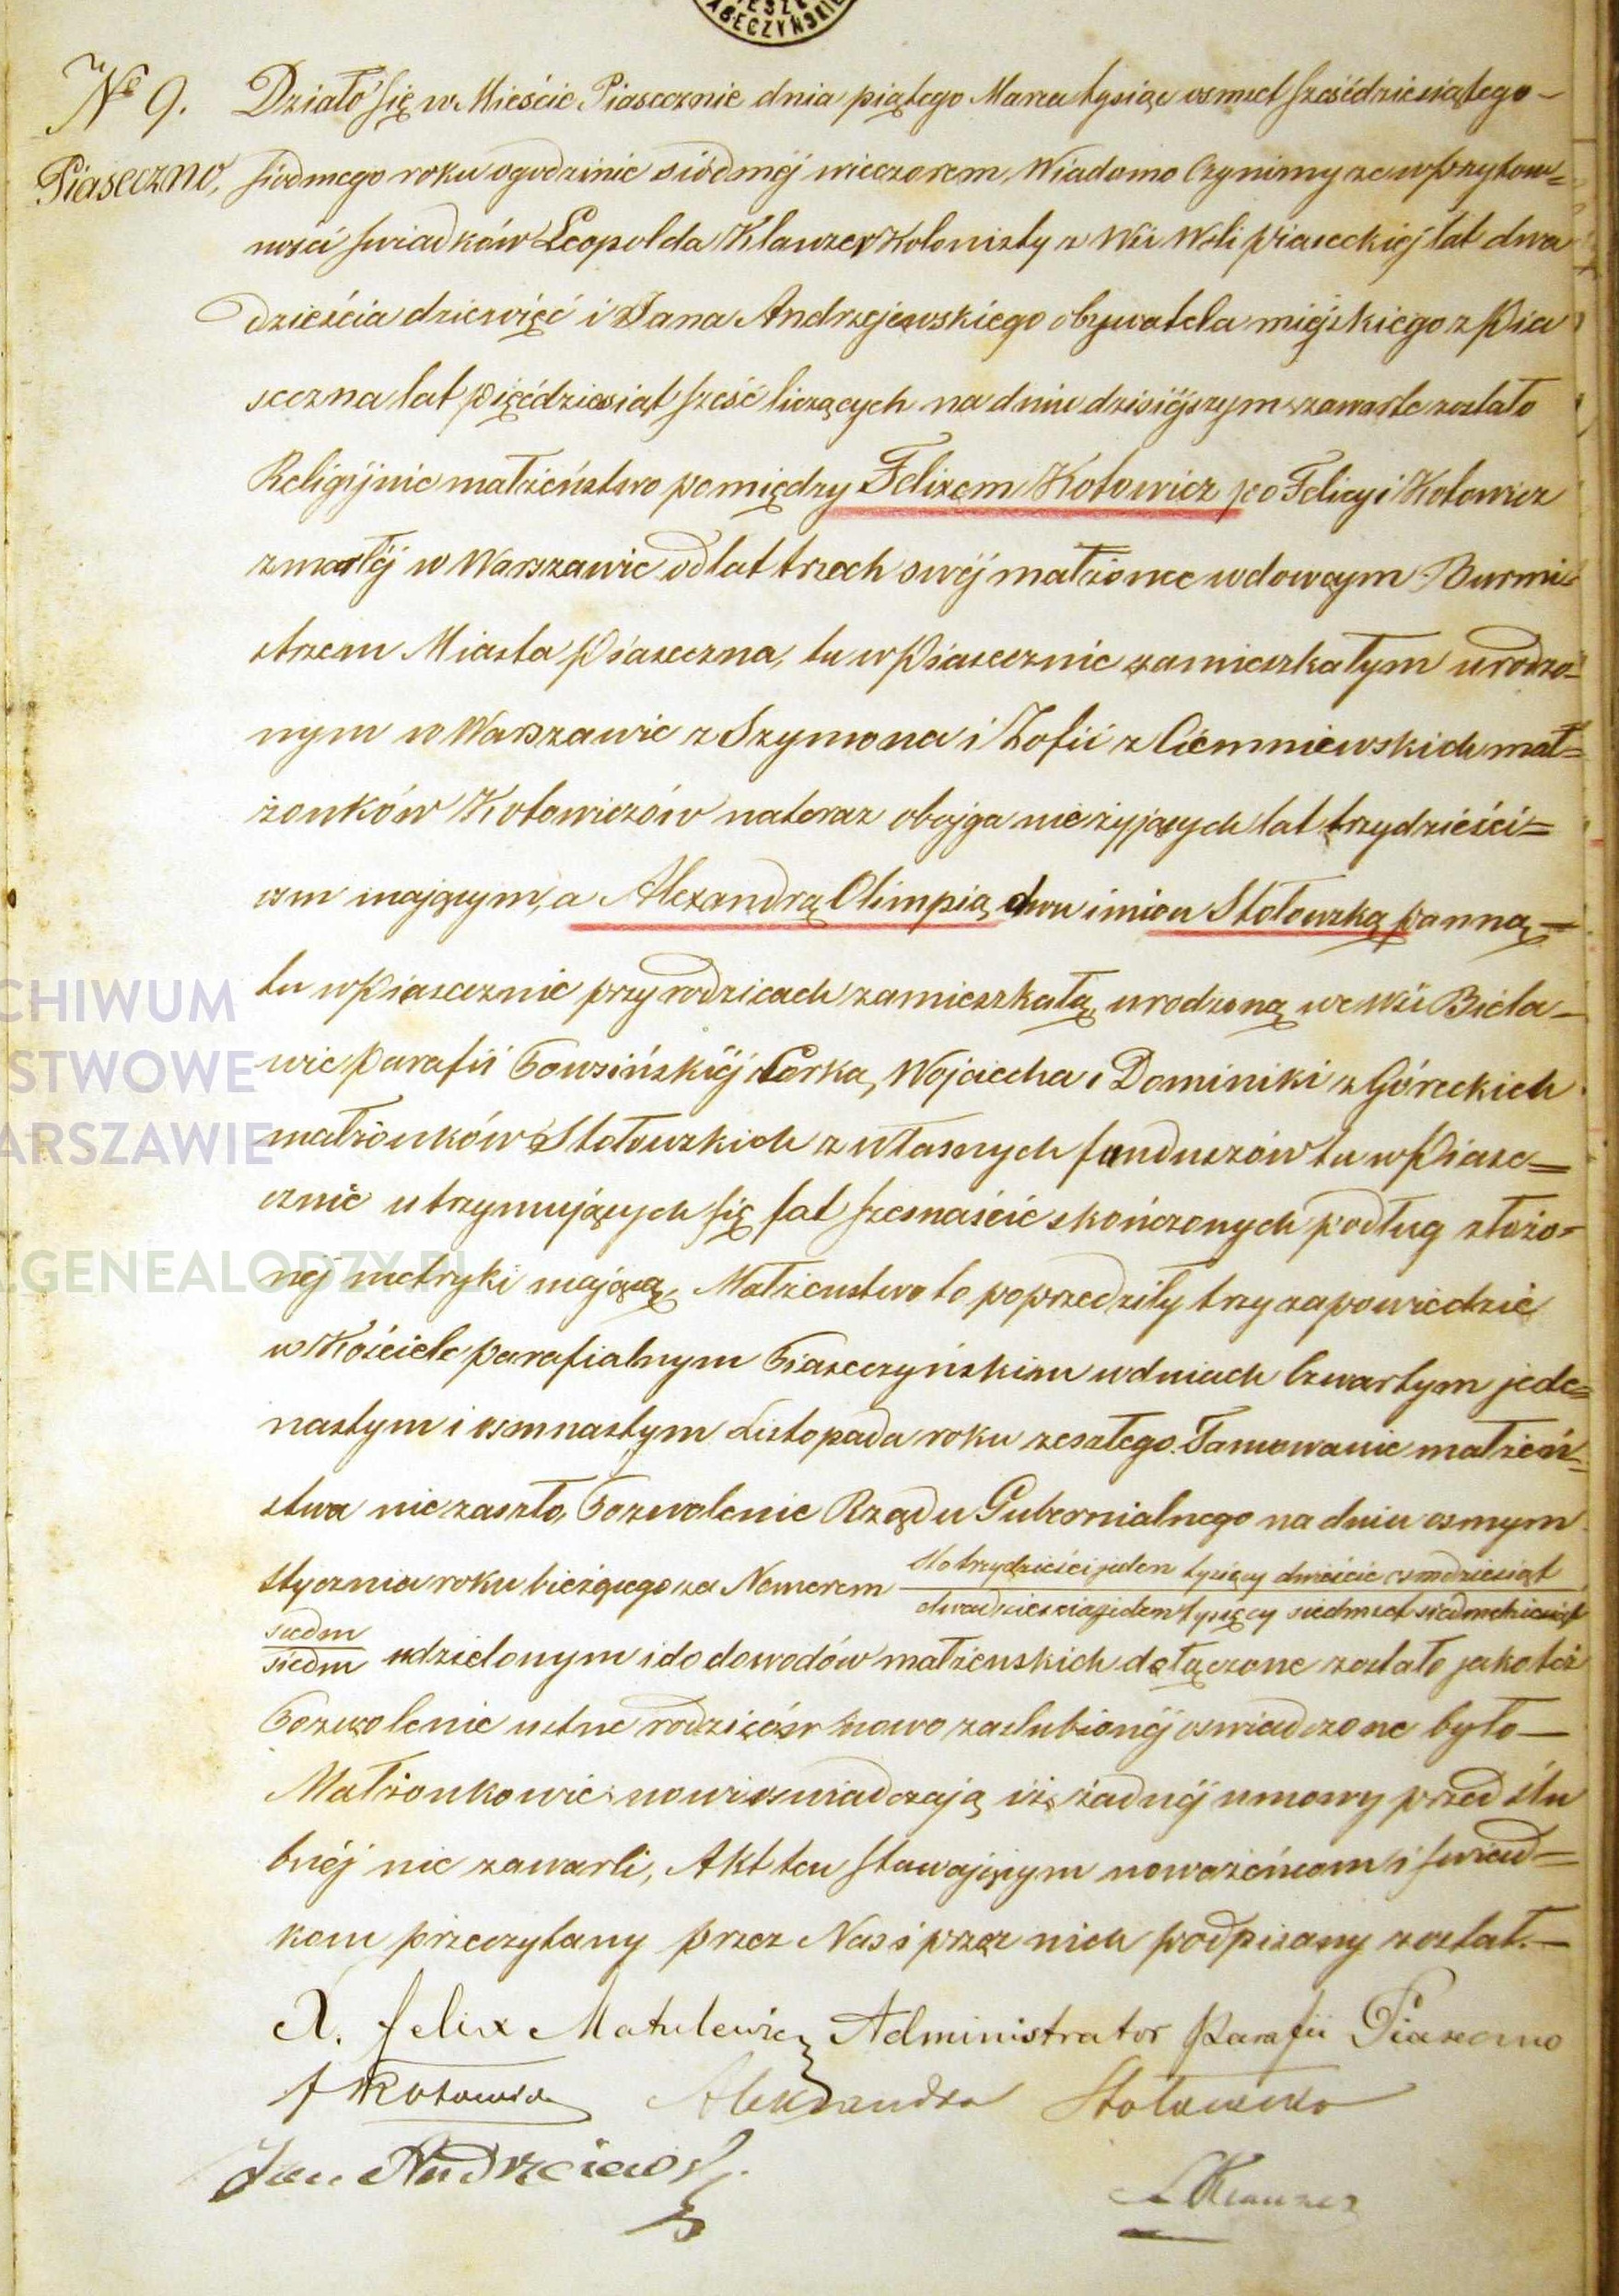 № 9. Działo się w Mieście Piasecznie dnia piątego Marca tysiąc osmset sześćdziesiątego
Piaseczno, siodmego roku o godzinie siódméj wieczorem, Wiadomo Czynimy ze w przytom=
ności swiadków Leopolda Klauzer Kolonisty z Wsi Woli Piaseckiéj lat dwa
dzieścia dziewięć i Jana Andrzejewskiego obywatela miejskiego z Pia
seczna lat pięćdziesiąt sześć liczących na dniu dzisiéjszym zawarte zostało
Religijnie małżeństwo pomiędzy Felixem Kotowicz po Felicyi Kotowicz
zmarłéj w Warszawie od lat trzech swéj małżonce wdowcym Burmi=
strzem Miasta Piaseczna, tu w Piasecznie zamieszkałym urodzo=
nym w Warszawie z Szymona i Zofii z Ciemniewskich mał=
żonków Kotowiczów na teraz obojga nieżyjących lat trzydzieści=
osm mającym, a Alexandrą Olimpią dwu imion Stołowską panną —
tu w Piasecznie przy rodzicach zamieszkałą, urodzoną we wsi Biela=
wie Parafii Powsińskiéj Corką, Wojciecha i Dominiki z Góreckich
małżonków Stołowskich z własnych funduszów tu w Piase=
cznie utrzymujących się lat szesnaście skończonych podług złożo=
néj metryki mającą, Małżenstwo to poprzedziły trzy zapowiedzie
w Kościele parafialnym Piaseczyńskim w dniach Czwartym jede=
nastym i osmnastym Listopada roku zeszłego. Tamowanie małżeń=
stwa nie zaszło, Pozwolenie Rządu Gubernialnego na dniu osmym
stycznia roku bieżącego za Nomerem sto trzydzieści jeden tysięcy dwieście osmdziesiąt
dwadzieścia jeden tysięcy siedmset siedmdziesiąt
siedm
siedm udzielonym i do dowodów małżenskich dołączone zostało jako też
Pozwolenie ustne rodziców nowo zaslubionéj oswiadczone było —
Małżonkowie nowi oswiadczają iż żadnéj umowy przedślu
bnéj nie zawarli, Akt ten stawającym nowożeńcom i swiad=
kom przeczytany przez Nas i przez nich podpisany został. —
X. Felix Matulewicz Administrator Parafii Piaseczno
F Kotowicz Alexandra Stołowska
Jan Andrzeiewski
L Klauzer
ESZE
ABECZYŃSKIE
CHIWUM
STWOWE
ARSZAWIE
.GENEALODZY.PL